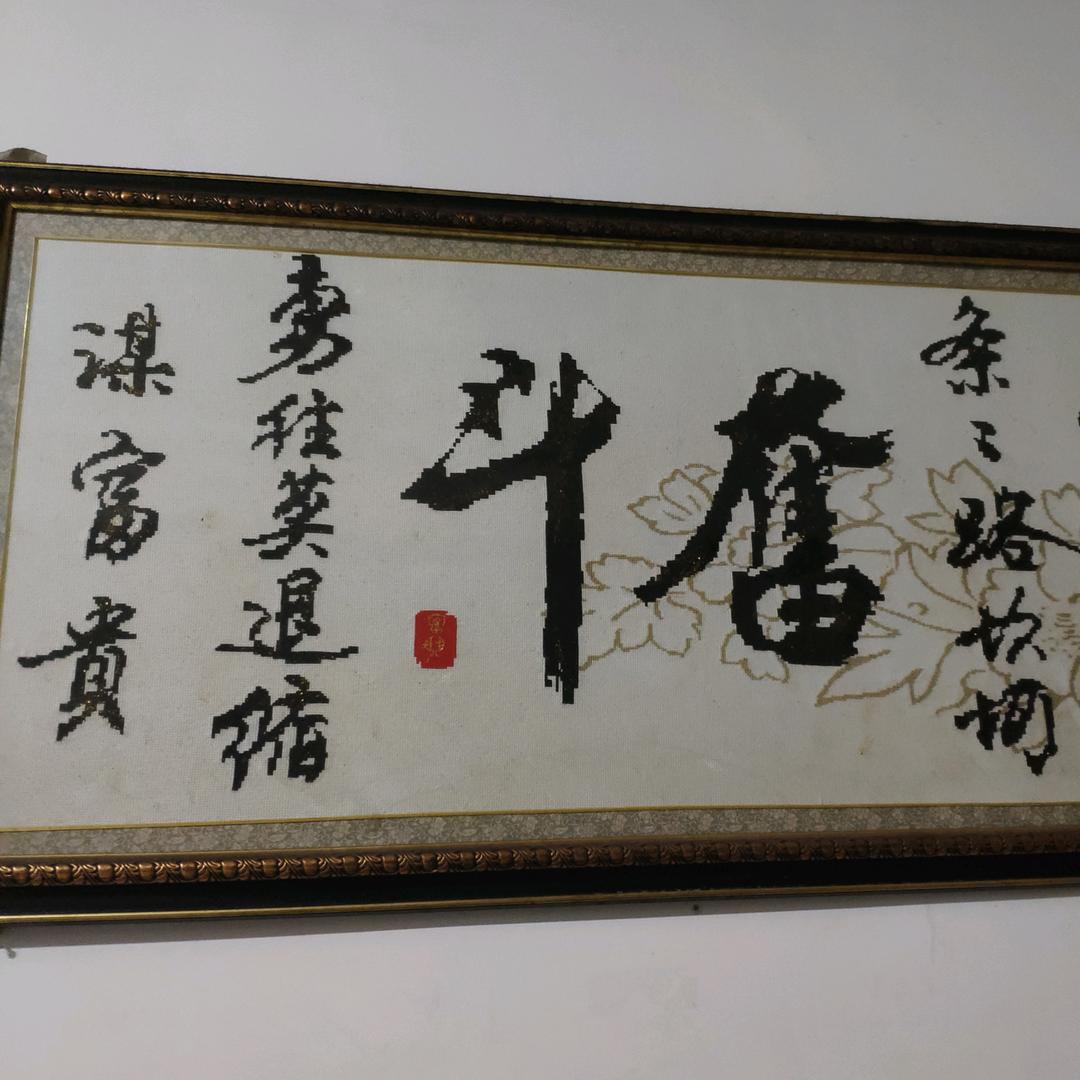 条々路坎坷
奮斗
勇往莫退缩
谋富貴